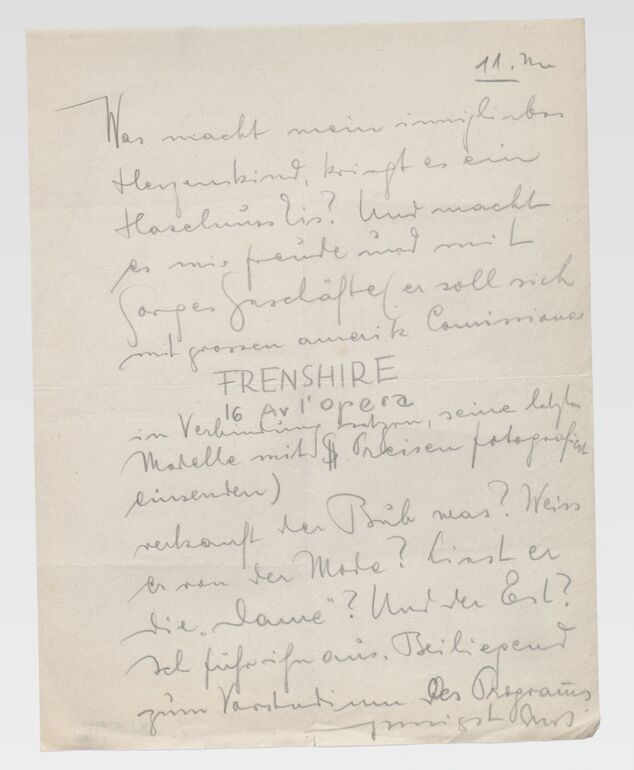 11.
Was macht mein innigliebes
Herzenskind, kriegt es ein
Haselnusseis? Und macht
es mir freude und mit
Gorges Geschäfte (er soll sich
mit grossen amerik Comissionär
FRENSHIRE
16 Av l'opera
in Verbindung setzen, seine letzten
Modelle mit $ Preisen fotografiert
einsenden)
verkauft der Bub was? Weiss
er von der Mode? Liest er
die „Dame"? Und der Est?
Ich führ ihn aus. Beiliegend
zum Vorstudium des Programs
innigst